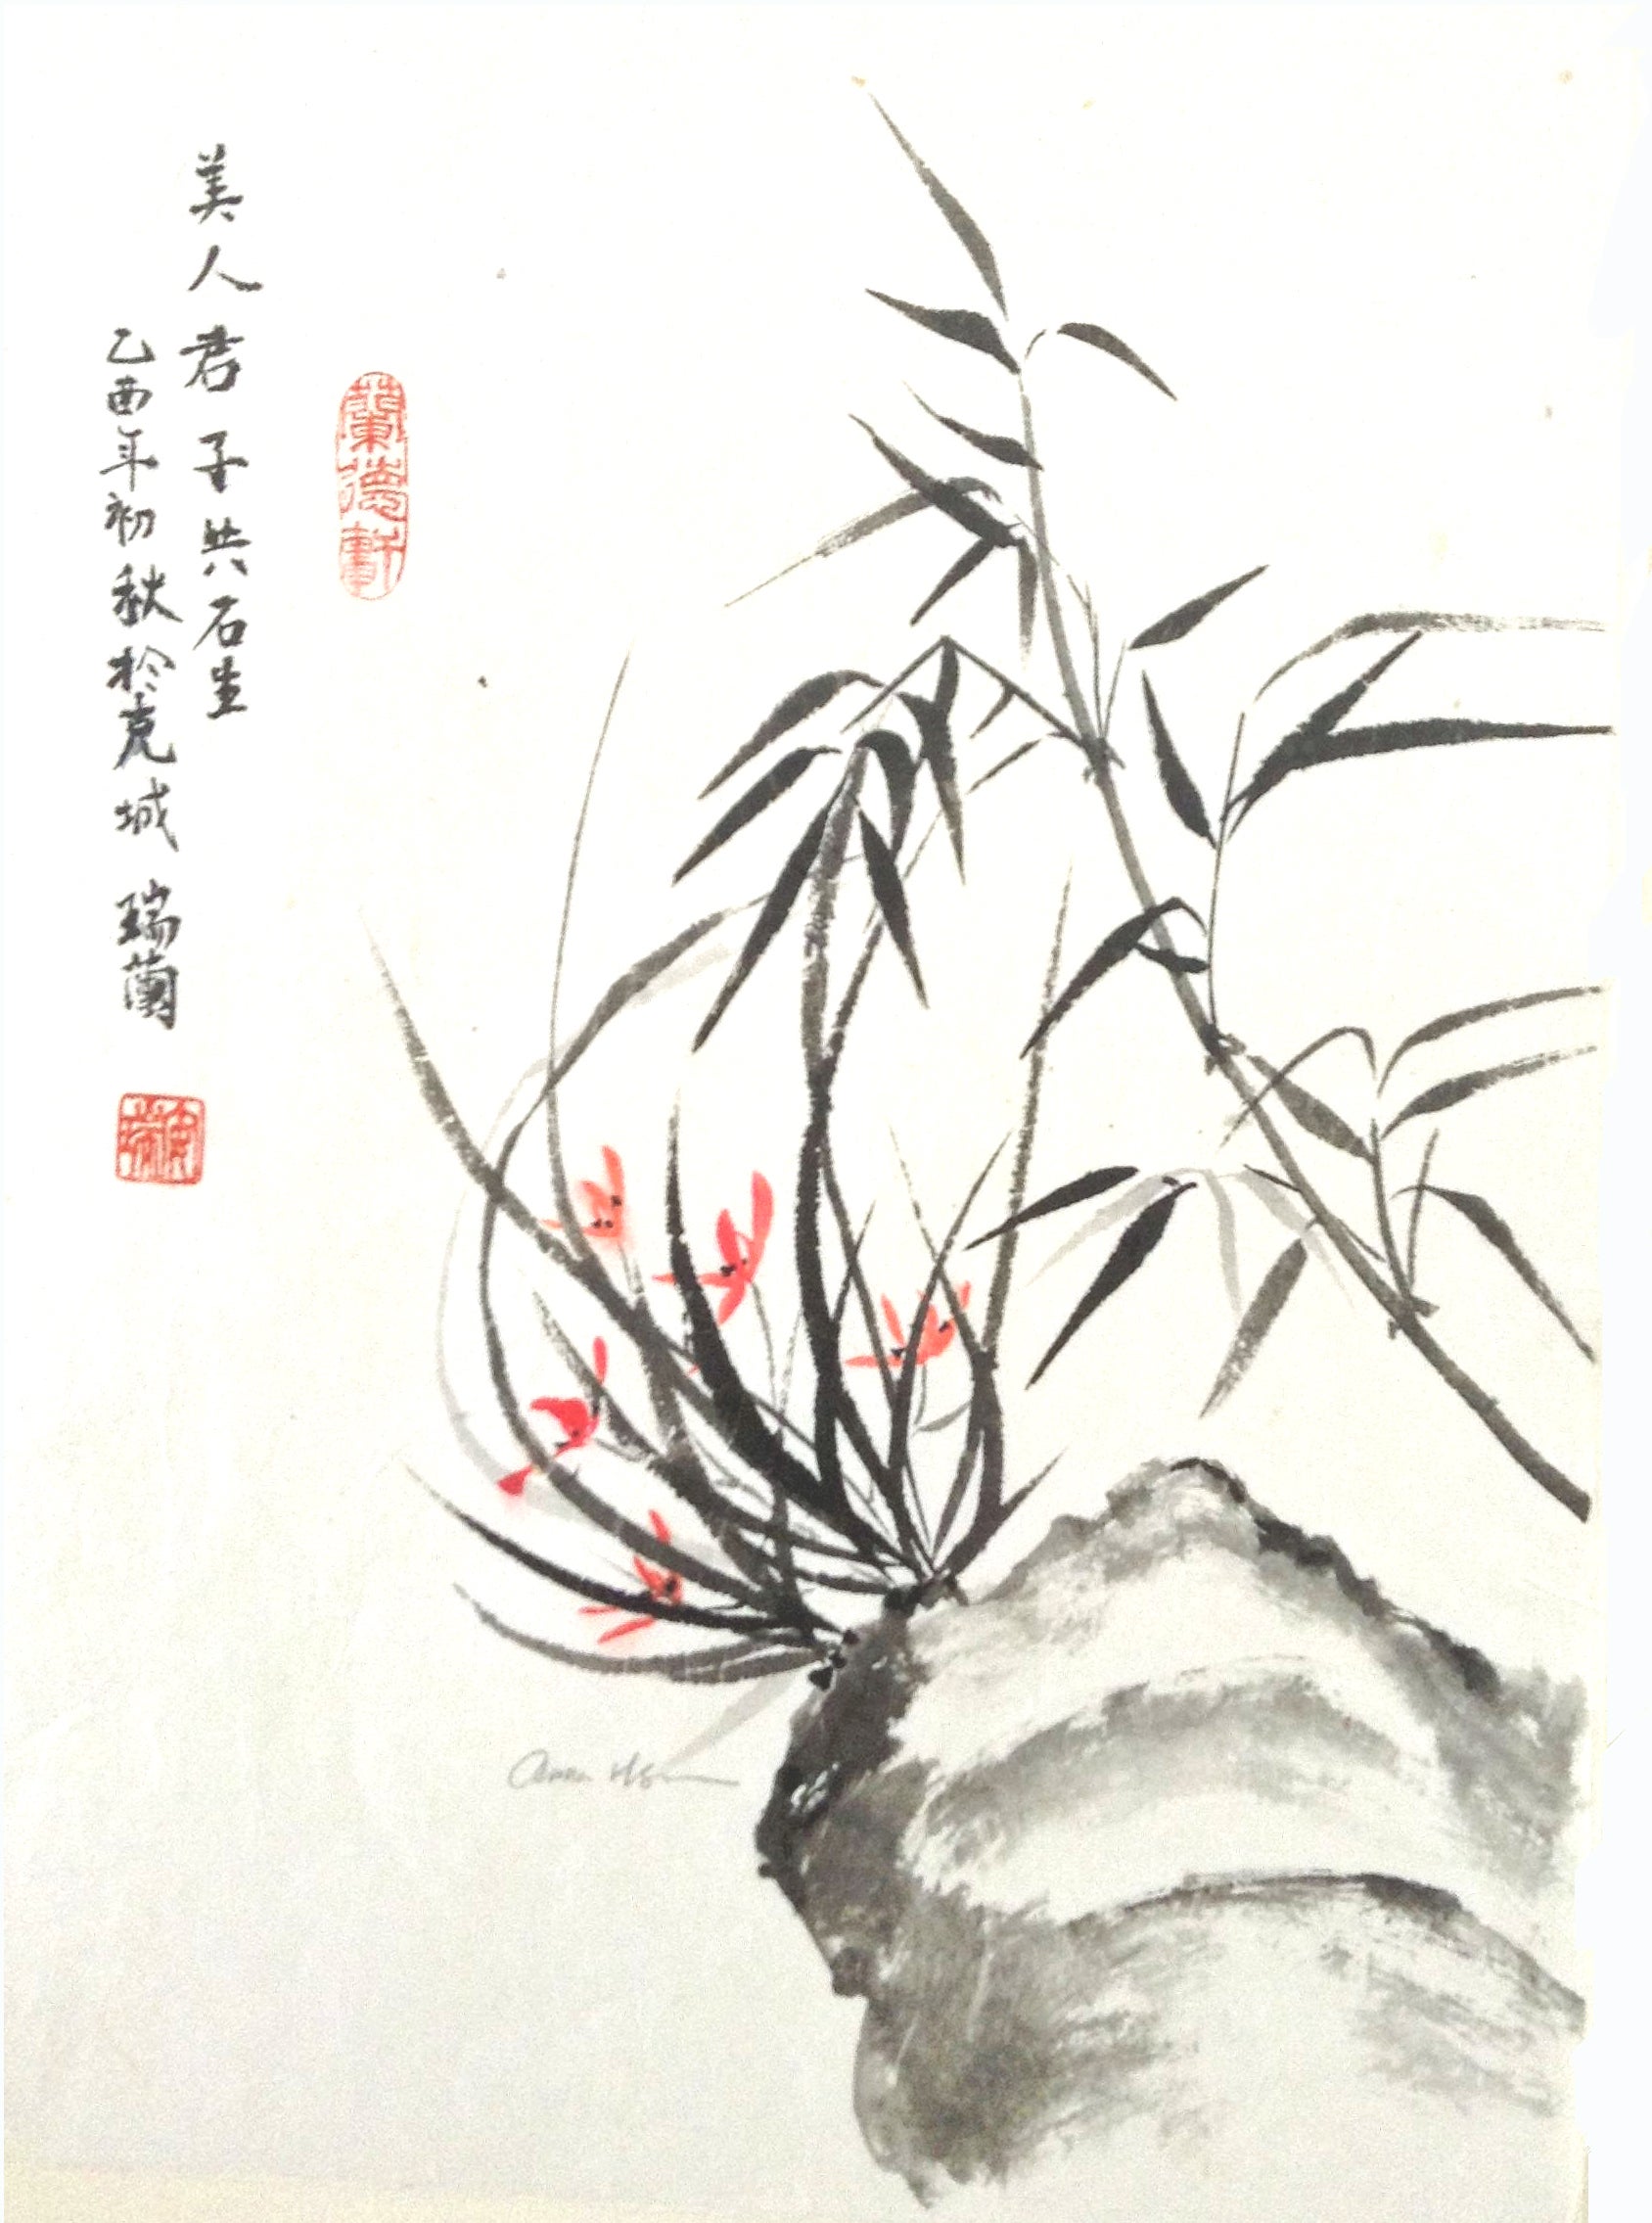 美人君子共石生
乙酉年初秋於克城 瑞蘭
蘭德軒